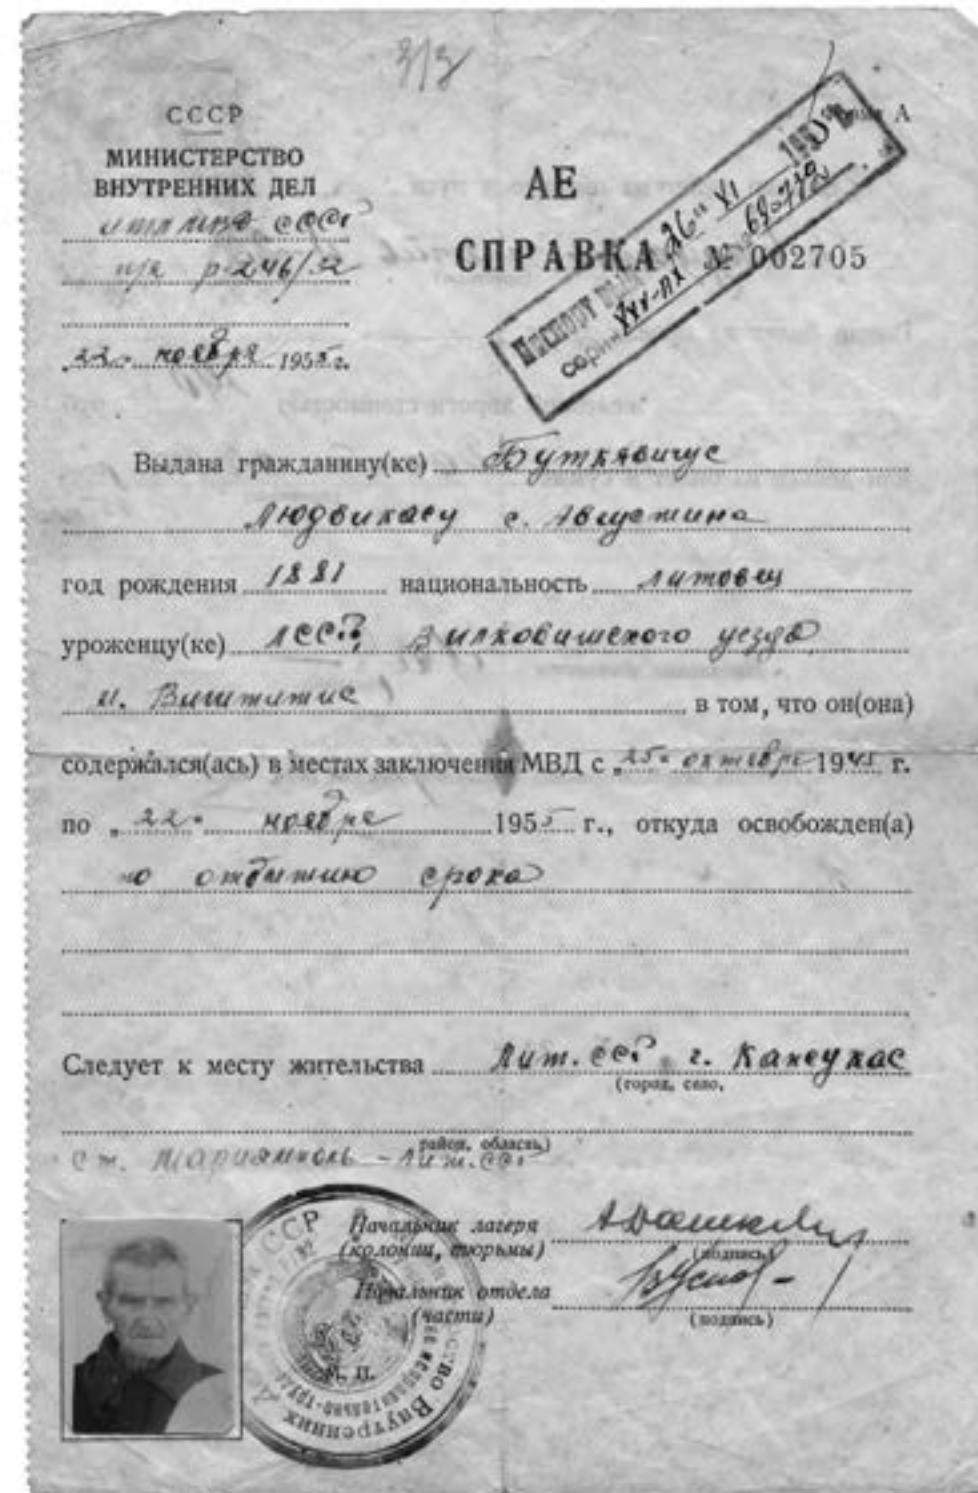 СССР
МИНИСТЕРСТВО
ВНУТРЕННИХ ДЕЛ
МВД СССР
п/я р-246/32
„22" ноября 1955 г.
А
АЕ
СПРАВКА № 002705
Паспорт 26" XI 195
серии № 69
Выдана гражданину(ке) Буткявичус
Людвикасу с. Августина
год рождения 1881 национальность литовец
уроженцу(ке) ЛССР, Вилковишского уезда
м. Виштитис в том, что он(она)
содержался(ась) в местах заключения МВД с „25" октября 1945 г.
по „22" ноября 1955 г., откуда освобожден(а)
по отбытию срока
Следует к месту жительства Лит. ССР г. Кансукас
(город, село,
район, область)
ст. Мариямполь - Лит. ССР
Начальник лагеря
(колонии, тюрьмы)
(подпись)
Начальник отдела
(части)
(подпись)
М. П.